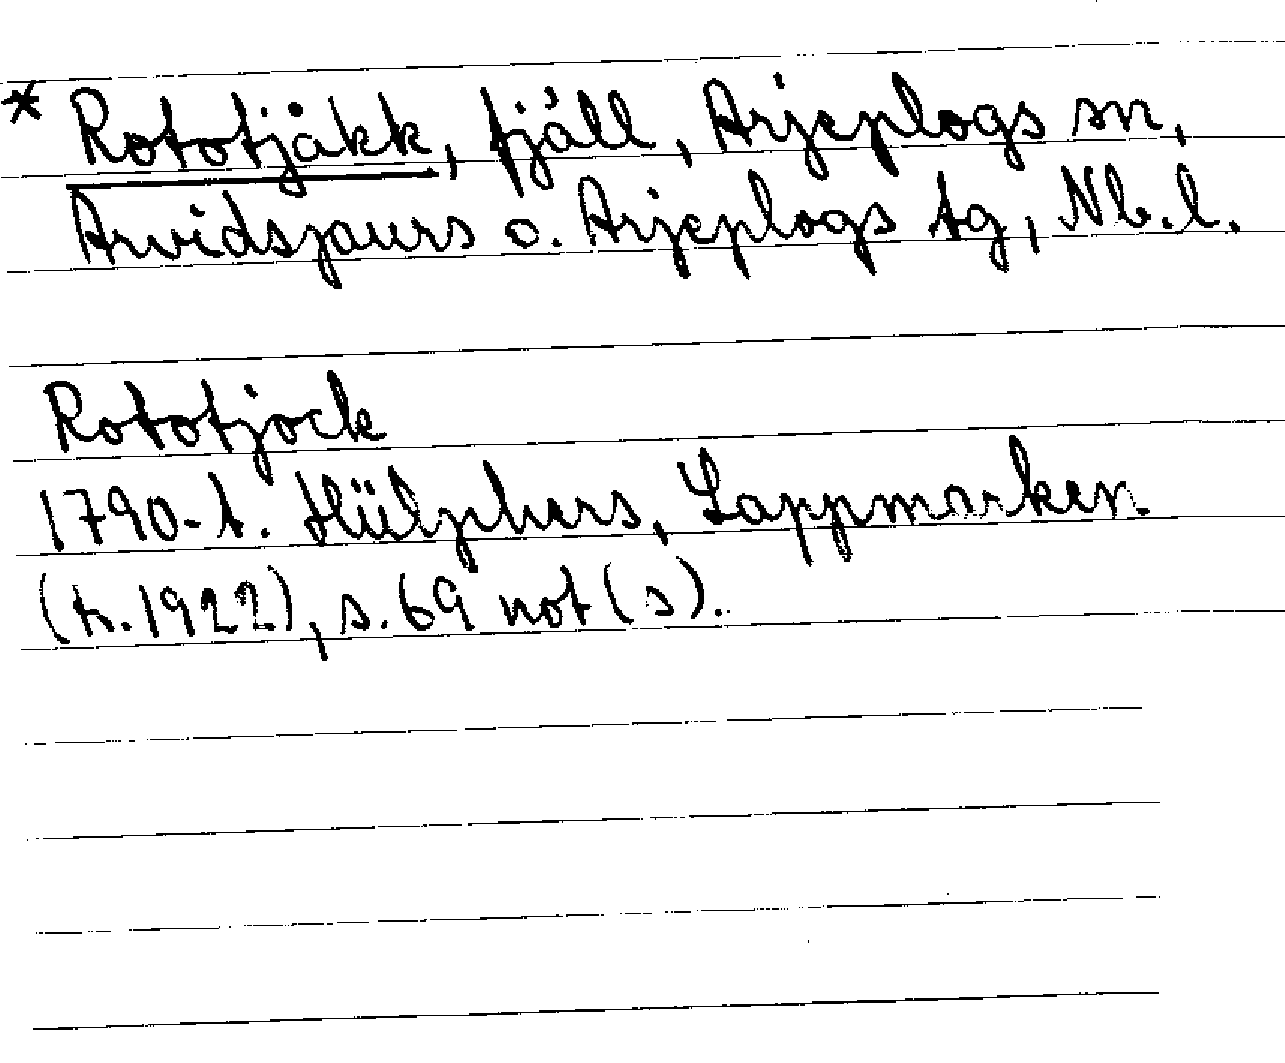 * Rototjåkk, fjäll, Arjeplogs sn,
Arvidsjaurs o. Arjeplogs tg, Nb.l.
Rototjock
1790-t. Hülphers, Lappmarken
(tr. 1922), s. 69 not (s).